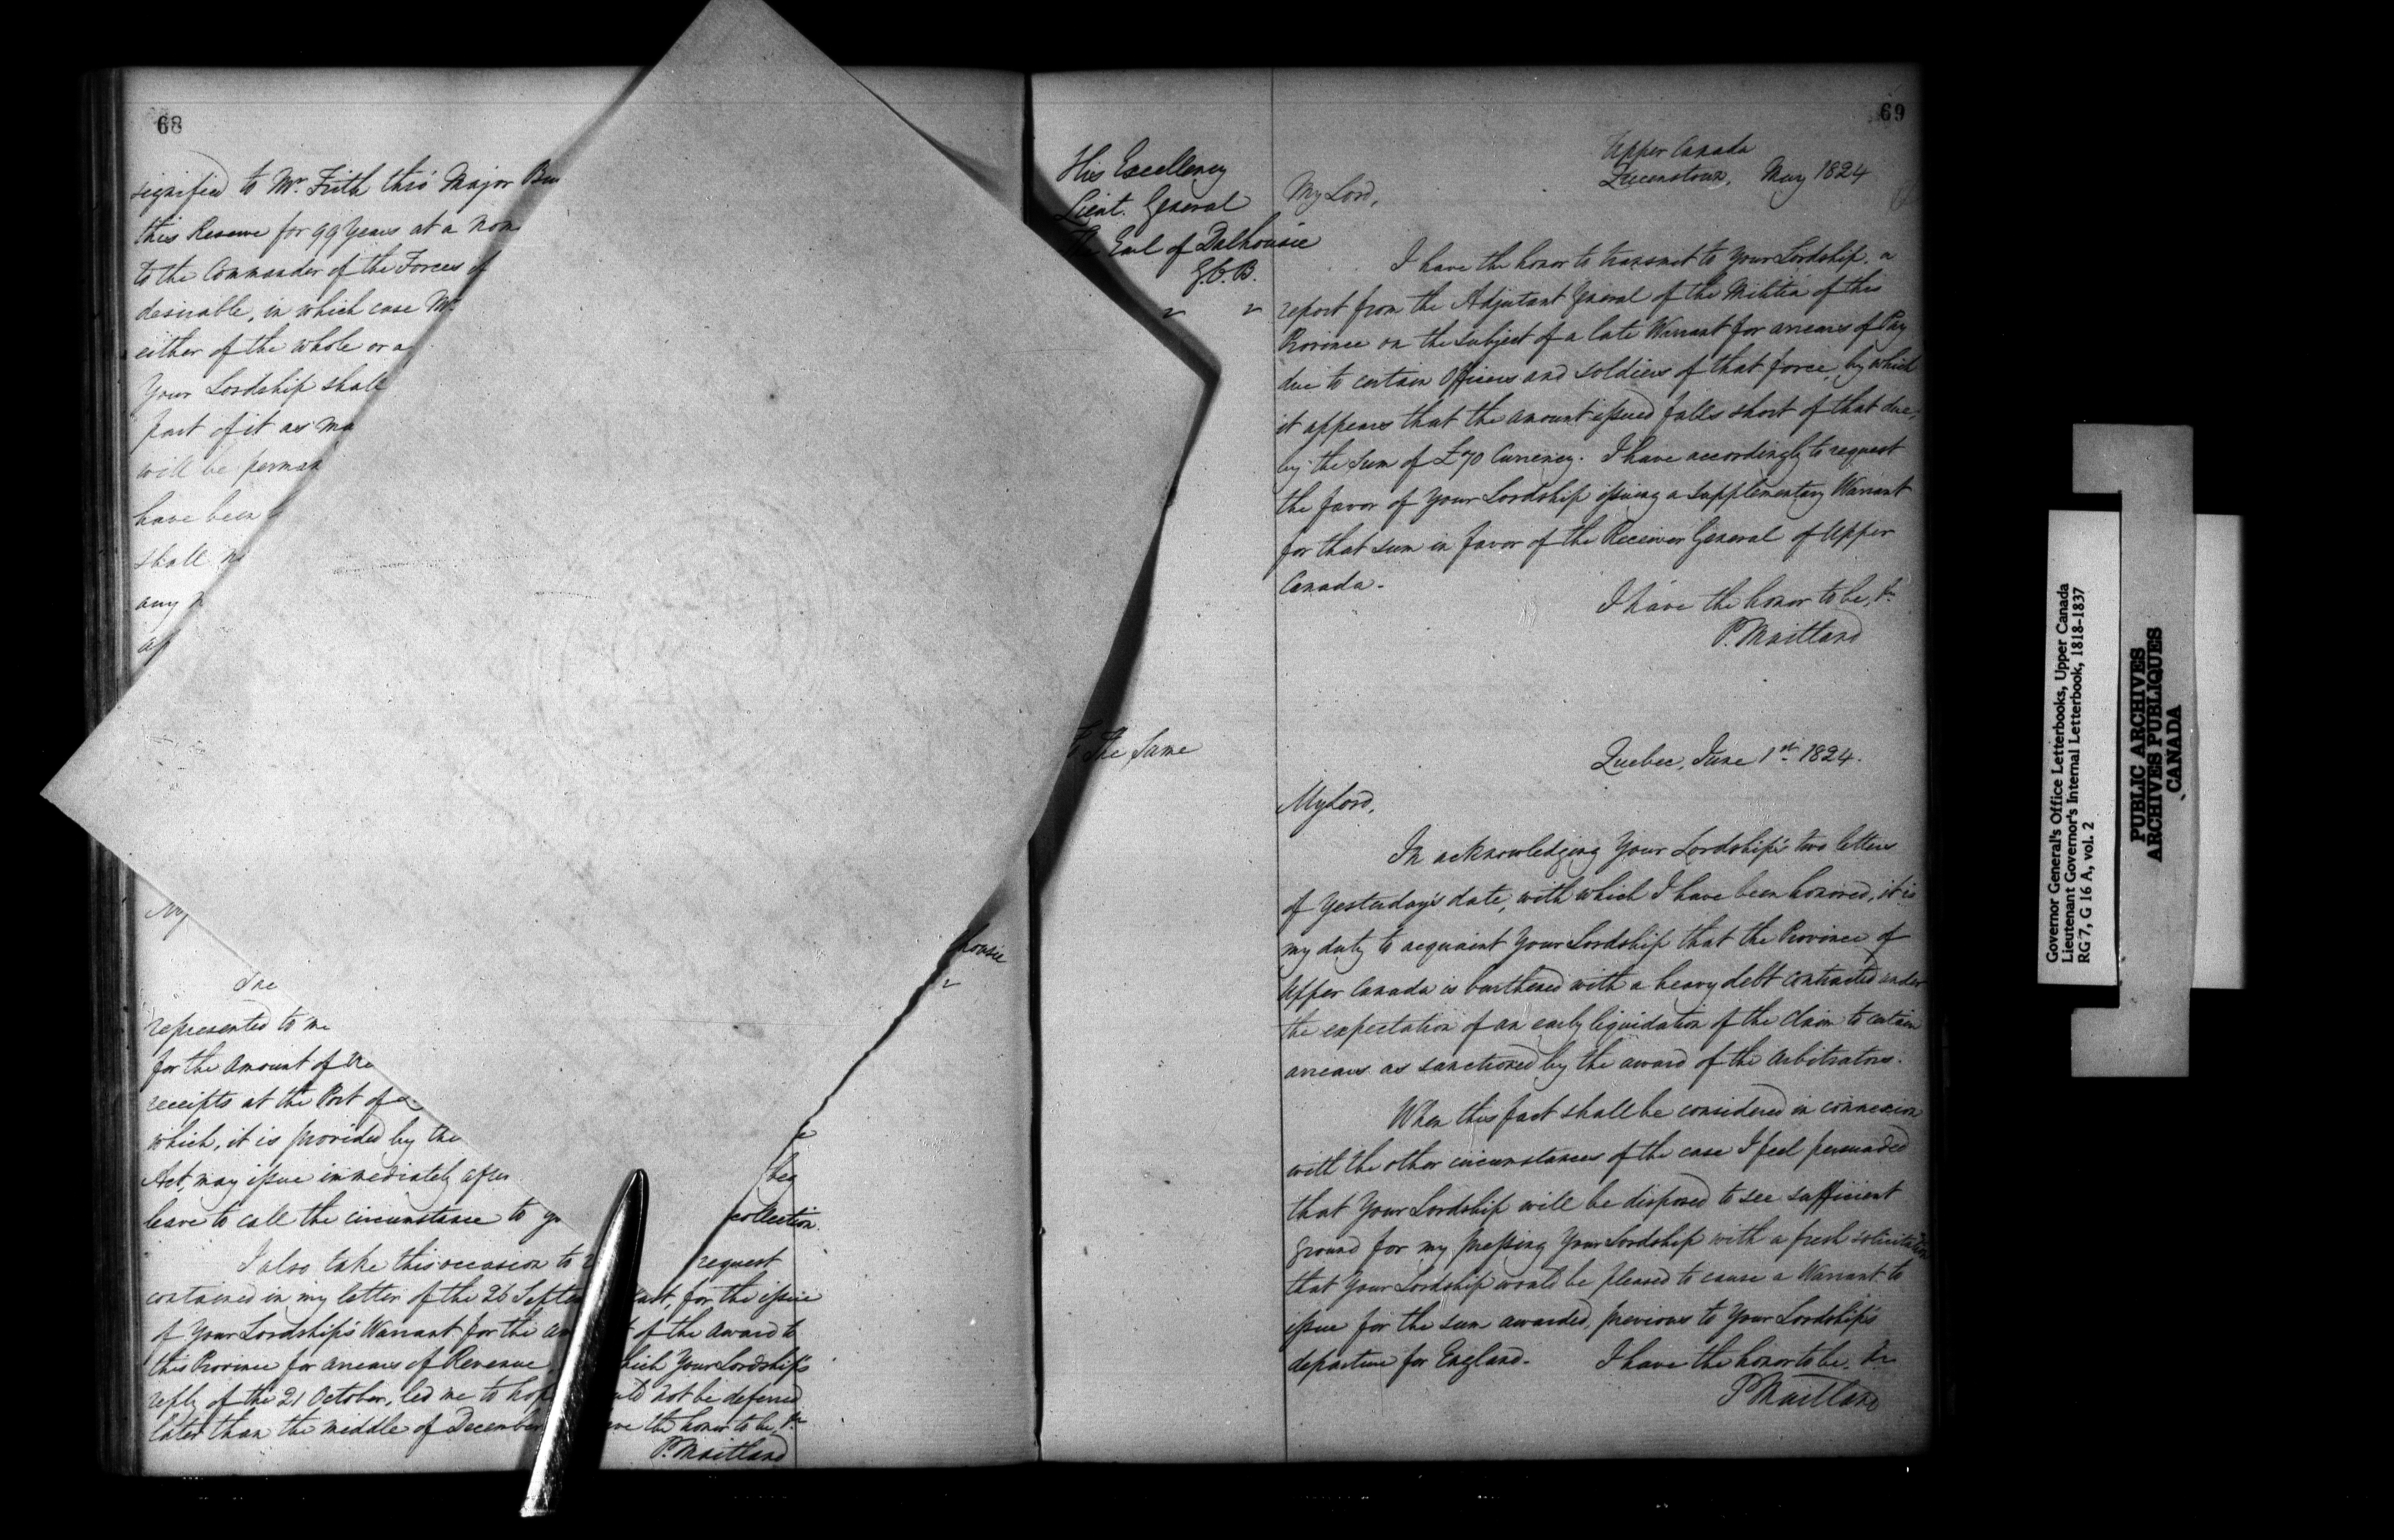 68
signified to Mr. Frith this Major
this Reserve for 99 Years at a
to the Commander of the Forces
desirable, in which case Mr.
either of the whole or a
Your Lordship shall
part of it as
will be
have been
shall
any
My
The
represented to me
for the amount of
receipts at the Port of
which, it is provided by the
Act, may issue immediately
beg
leave to call the circumstance to
collection.
I also take this occasion to
request
contained in my letter of the 26
last, for the issue
of Your Lordship's Warrant for the
of the award to
this Province for arrears of Revenue,
Your Lordship's
reply of the 21 October, led me to
not be deferred
later than the middle of December
the honor to be, &c
P. Maitland
69
His Excellency
Lieut. General
The Earl of Dalhousie
G.C.B.
Upper Canada
Queenstown, May 1824
My Lord,
I have the honor to transmit to Your Lordship, a
report from the Adjutant General of the Militia of this
Province on the subject of a late Warrant for arrears of Pay
due to certain Officers and soldiers of that force, by which
it appears that the amount issued falls short of that due,
by the Sum of £70 Currency. I have accordingly to request
the favor of Your Lordship issuing a supplementary Warrant
for that sum in favor of the Receiver General of Upper
Canada.
I have the honor to be, &c
P. Maitland
To The Same
Quebec, June 1st 1824.
My Lord,
In acknowledging Your Lordship's two letters
of yesterday's date, with which I have been honored, it is
my duty to acquaint Your Lordship that the Province of
Upper Canada is burthened with a heavy debt contracted under
the expectation of an early liquidation of the claim to certain
arrears as sanctioned by the award of the Arbitrators.
When this fact shall be considered in connexion
with the other circumstances of the case I feel persuaded
that Your Lordship will be disposed to see sufficient
ground for my pressing Your Lordship with a fresh solicitation
that Your Lordship would be pleased to cause a Warrant to
issue for the sum awarded, previous to Your Lordship's
departure for England. I have the honor to be. &c
P Maitland
Governor General's Office Letterbooks, Upper Canada
Lieutenant Governor's Internal Letterbook, 1818-1837
RG 7, G 16 A, vol. 2
PUBLIC ARCHIVES
ARCHIVES PUBLIQUES
CANADA